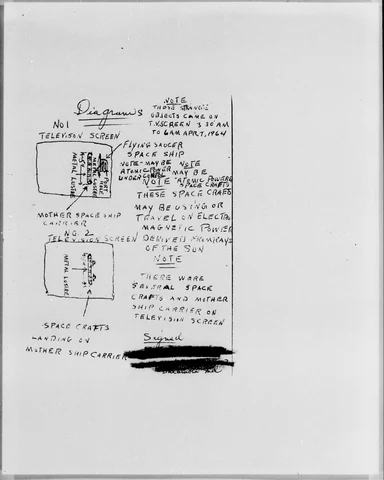 Diagrams
NO 1
TELEVISON SCREEN
PORT
HOLE
METAL LUSTRE
METAL LUSTRE
MOTHER SPACE SHIP
CARRIER
NO. 2
TELEVISION SCREEN
METAL LUSTRE
SPACE CRAFTS
LANDING ON
MOTHER SHIP CARRIER
NOTE
THOSE STRANGE
OBJECTS CAME ON
T.V. SCREEN 3 30 AM
TO 6 AM APR, 7, 1964
FLYING SAUCER
SPACE SHIP
NOTE-MAYBE
ATOMIC POWER
UNDER
NOTE
MAY BE
ATOMIC POWERED
SPACE CRAFTS
NOTE
THESE SPACE CRAFTS
MAY BE USING OR
TRAVEL ON ELECTRO
MAGNETIC POWER
DERIVED FROM RAYS
OF THE SUN
NOTE
THERE WARE
SEVERAL SPACE
CRAFTS AND MOTHER
SHIP CARRIER ON
TELEVISION SCREEN
Signed